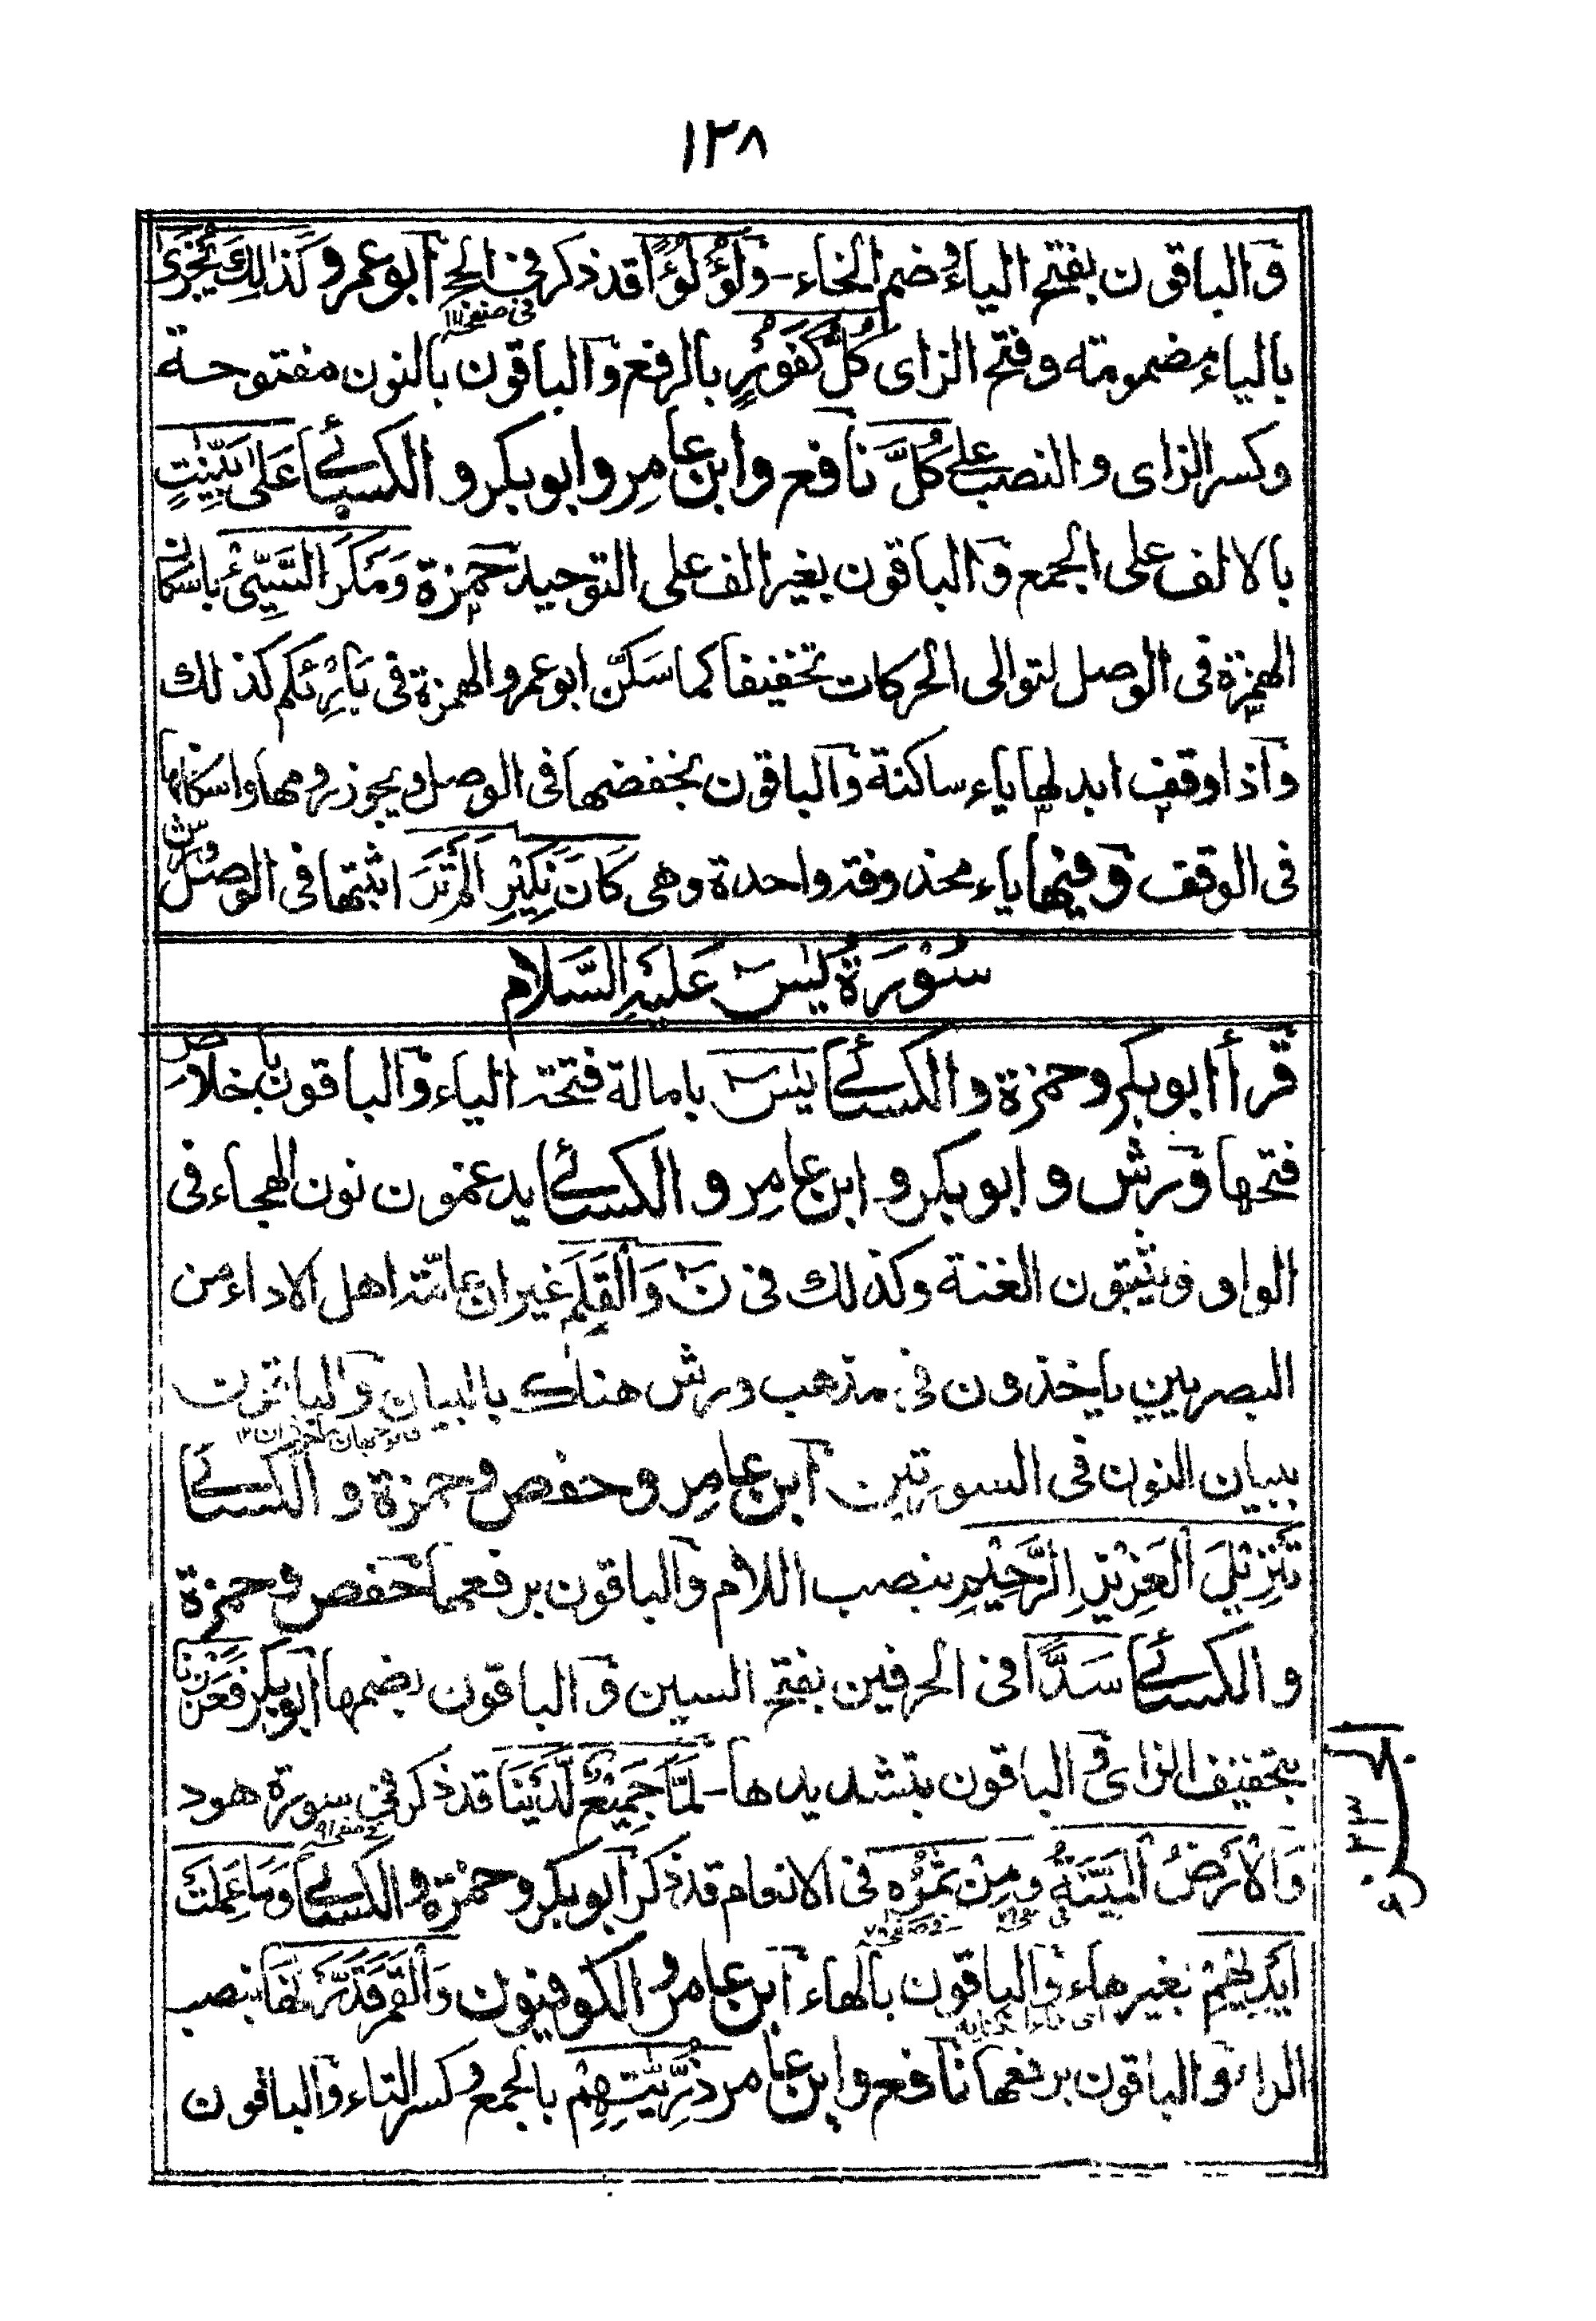 ١٢٨
والباقون بفتح الياء وضم الخاء - وَلُؤْلُؤًا قد ذكر فى الحج ابو عمرو كَذٰلِكَ يُجْزٰى
فى صفحة
بالياء مضمومة وفتح الزاى كُلُّ كَفُوْرٍ بالرفع والباقون بالنون مفتوحة
وكسر الزاى والنصب على كُلَّ نافع وابن عامر وابو بكر والكسائى عَلٰى بَيِّنٰتٍ
بالالف على الجمع والباقون بغير الف على التوحيد حمزة وَمَكْرَ السَّيِّئْ باسكان
الهمزة فى الوصل لتوالى الحركات تخفيفا كما سكّن ابو عمرو الهمزة فى بَارِئْكم كذلك
واذا وقف ابدلها ياء ساكنة والباقون بخفضها فى الوصل ويجوز رومها واسكانها
فى الوقف وفيها ياء محذوفة واحدة وهى كَانَ نَكِيْرِ اَلَمْ تَرَ اثبتها فى الوصل ورش
سُوْرَةُ يٰسٓ عَلَيْهِ السَّلَام
قرأ ابو بكر وحمزة والكسائى يٰسٓ بامالة فتحة الياء والباقون باخلاص
فتحها ورش وابو بكر وابن عامر والكسائى يدغمون نون الهجاء فى
الواو ويثبتون الغنة وكذلك فى نٓ وَالْقَلَمِ غير ان عامّة اهل الاداء من
البصريين ياخذون فى مذهب ورش هناك بالبيان والباقون
ببيان النون فى السورتين ابن عامر وحفص وحمزة والكسائى
تَنْزِيْلَ الْعَزِيْزِ الرَّحِيْمِ بنصب اللام والباقون برفعها حفص وحمزة
والكسائى سَدًّا فى الحرفين بفتح السين والباقون بضمها ابو بكر فَعَزَزْنَا
بتخفيف الزاى والباقون بتشديدها - لَمَّا جَمِيْعٌ لَّدَيْنَا قد ذكر فى سورة هود
وَالْاَرْضُ الْمَيْتَةُ وَمِنْ ثَمَرِهِ فى الانعام قد ذكر ابو بكر وحمزة والكسائى وَمَا عَمِلَتْ
اَيْدِيْهِمْ بغير هاء والباقون بالهاء ابن عامر والكوفيون وَالْقَمَرَ قَدَّرْنٰهُ بنصب
الراء والباقون برفعها نافع وابن عامر ذُرِّيّٰتِهِمْ بالجمع وكسر التاء والباقون